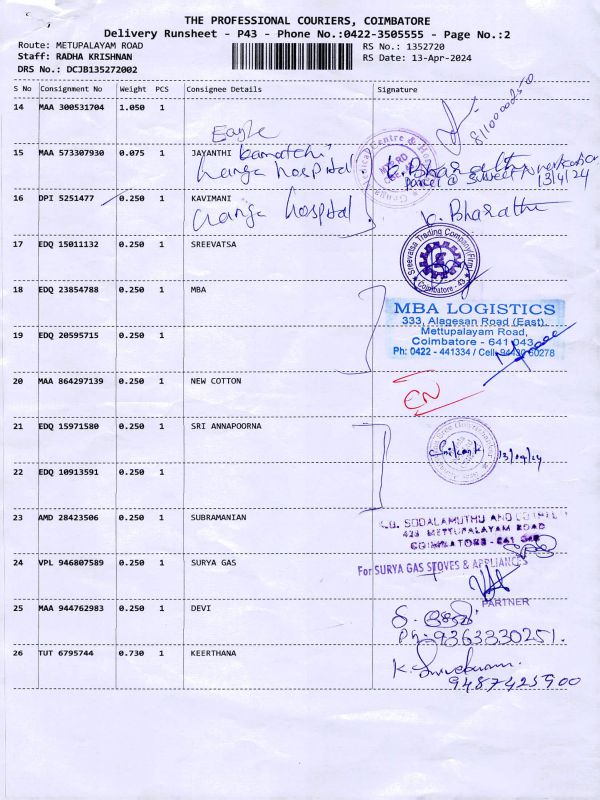 THE PROFESSIONAL COURIERS, COIMBATORE
Delivery Runsheet - P43 - Phone No.:0422-3505555 - Page No.:2
Route: METUPALAYAM ROAD
RS No.: 1352720
Staff: RADHA KRISHNAN
RS Date: 13-Apr-2024
DRS No.: DCJB135272002
S No Consignment No Weight PCS Consignee Details Signature
14 MAA 300531704 1.050 1
Eagle
15 MAA 573307930 0.075 1 JAYANTHI kamatchi
Ganga hospital
K. Bharathi
13/4/24
16 DPI 5251477 0.250 1 KAVIMANI
Ganga hospital
K. Bharathi
17 EDQ 15011132 0.250 1 SREEVATSA
Sreevatsa Trading Company(Firm)
Coimbatore - 43
18 EDQ 23854788 0.250 1 MBA
MBA LOGISTICS
333, Alagesan Road (East),
Mettupalayam Road,
Coimbatore - 641 043
19 EDQ 20595715 0.250 1
Ph: 0422 - 441334 / Cell: 94430 60278
20 MAA 864297139 0.250 1 NEW COTTON
CN
21 EDQ 15971580 0.250 1 SRI ANNAPOORNA
Srikanth 13/04/24
22 EDQ 10913591 0.250 1
23 AMD 28423506 0.250 1 SUBRAMANIAN
SODALAMUTHU AND
423 METTUPALAYAM ROAD
COIMBATORE
24 VPL 946807589 0.250 1 SURYA GAS
For SURYA GAS STOVES & APPLIANCES
PARTNER
25 MAA 944762983 0.250 1 DEVI
Ph: 9363330251.
26 TUT 6795744 0.730 1 KEERTHANA
9487425900